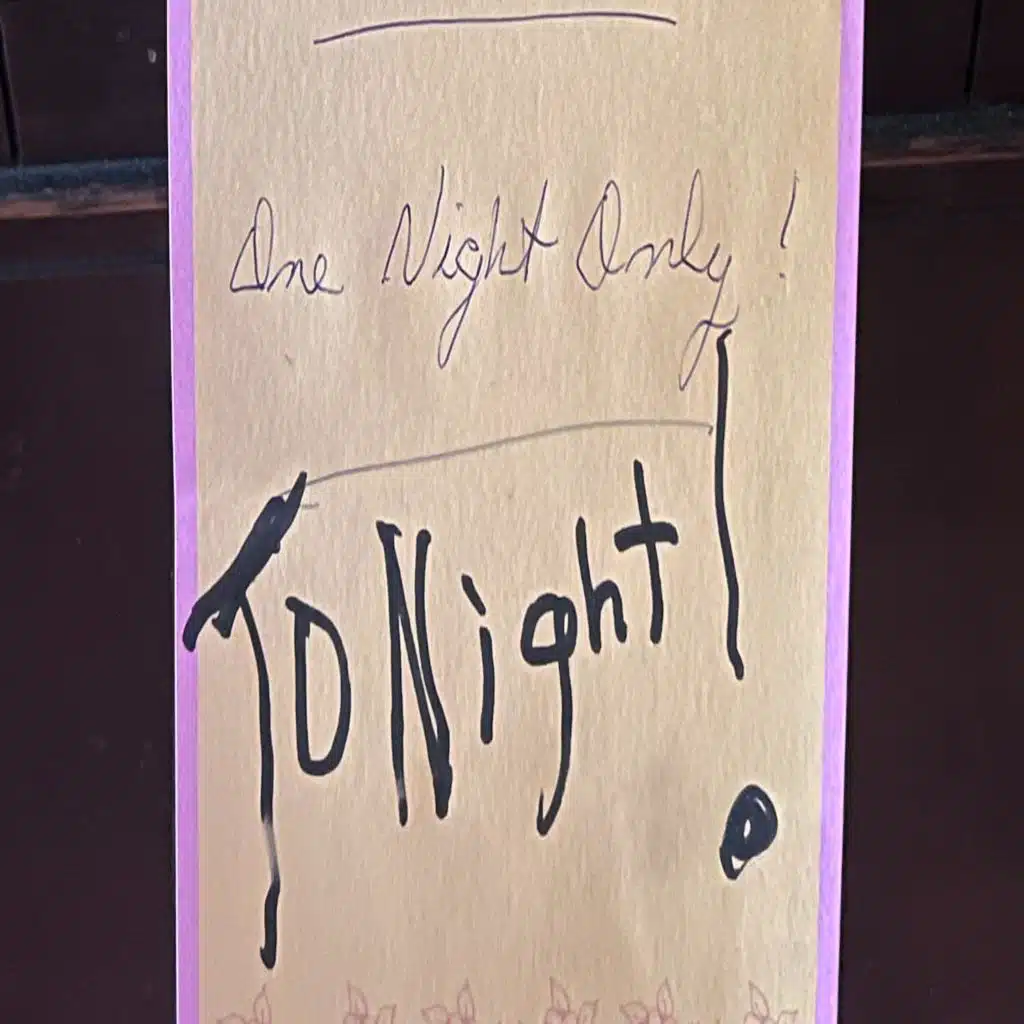 One Night Only!
TONight!